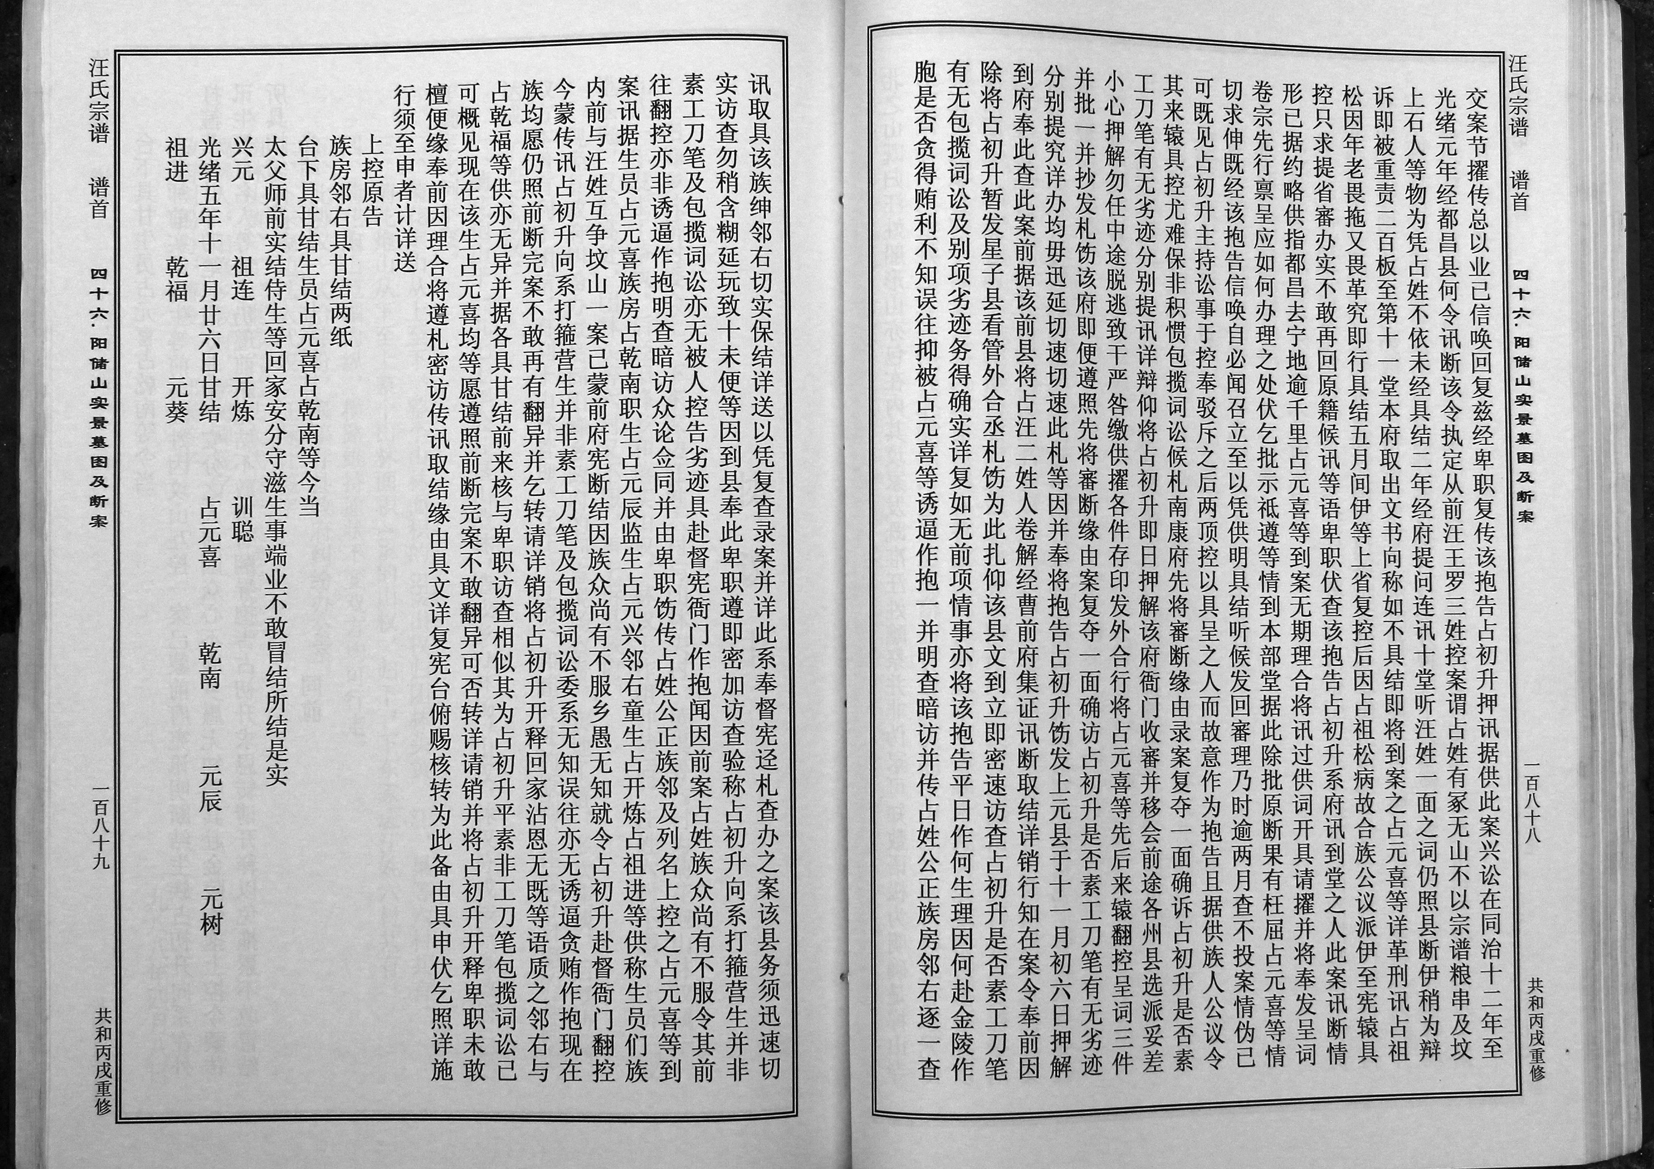 汪氏宗谱 谱首 四十六·阳储山实景墓图及断案 一百八十八 共和丙戌重修
交案节擢传总以业已信唤回复兹经卑职复传该抱告占初升押讯据供此案兴讼在同治十二年至
光绪元年经都昌县何令讯断该令执定从前汪王罗三姓控案谓占姓有冢无山不以宗谱粮串及坟
上石人等物为凭占姓不依未经具结二年经府提问连讯十堂听汪姓一面之词仍照县断伊稍为辩
诉即被重责二百板至第十一堂本府取出文书向称如不具结即将到案之占元喜等详革刑讯占祖
松因年老畏拖又畏革究即行具结五月间伊等上省复控后因占祖松病故合族公议派伊至宪辕具
控只求提省审办实不敢再回原籍候讯等语卑职伏查该抱告占初升系府讯到堂之人此案讯断情
形已据约略供指都昌去宁地逾千里占元喜等到案无期理合将讯过供词开具请擢并将奉发呈词
卷宗先行禀呈应如何办理之处伏乞批示祗遵等情到本部堂据此除批原断果有枉屈占元喜等情
切求伸既经该抱告信唤自必闻召立至以凭供明具结听候发回审理乃时逾两月查不投案情伪已
可概见占初升主持讼事于控奉驳斥之后两顶控以具呈之人而故意作为抱告且据供族人公议令
其来辕具控尤难保非积惯包揽词讼候札南康府先将审断缘由录案复夺一面确诉占初升是否素
工刀笔有无劣迹分别提讯详辩仰将占初升即日押解该府衙门收审并移会前途各州县选派妥差
小心押解勿任中途脱逃致干严咎缴供擢各件存印发外合行将占元喜等先后来辕翻控呈词三件
并批一并抄发札饬该府即便遵照先将审断缘由案复夺一面确访占初升是否素工刀笔有无劣迹
分别提究详办均毋迅延切速切速此札等因并奉将抱告占初升饬发上元县于十一月初六日押解
到府奉此查此案前据该前县将占汪二姓人卷解经曹前府集证讯断取结详销行知在案令奉前因
除将占初升暂发星子县看管外合丞札饬为此扎仰该县文到立即密速访查占初升是否素工刀笔
有无包揽词讼及别项劣迹务得确实详复如无前项情事亦将该抱告平日作何生理因何赴金陵作
胞是否贪得贿利不知误往抑被占元喜等诱逼作抱一并明查暗访并传占姓公正族房邻右逐一查
讯取具该族绅邻右切实保结详送以凭复查录案并详此系奉督宪迳札查办之案该县务须迅速切
实访查勿稍含糊延玩致十未便等因到县奉此卑职遵即密加访查验称占初升向系打箍营生并非
素工刀笔及包揽词讼亦无被人控告劣迹具赴督宪衙门作抱闻因前案占姓族众尚有不服令其前
往翻控亦非诱逼作抱明查暗访众论佥同并由卑职饬传占姓公正族邻及列名上控之占元喜等到
案讯据生员占元喜族房占乾南职生占元辰监生占元兴邻右童生占开炼占祖进等供称生员们族
内前与汪姓互争坟山一案已蒙前府宪断结因族众尚有不服乡愚无知就令占初升赴督衙门翻控
今蒙传讯占初升向系打箍营生并非素工刀笔及包揽词讼委系无知误往亦无诱逼贪贿作抱现在
族均愿仍照前断完案不敢再有翻异并乞转请详销将占初升开释回家沾恩无既等语质之邻右与
占乾福等供亦无异并据各具甘结前来核与卑职访查相似其为占初升平素非工刀笔包揽词讼已
可概见现在该生占元喜均等愿遵照前断完案不敢翻异可否转详请销并将占初升开释卑职未敢
檀便缘奉前因理合将遵札密访传讯取结缘由具文详复宪台俯赐核转为此备由具申伏乞照详施
行须至申者计详送
上控原告
族房邻右具甘结两纸
台下具甘结生员占元喜占乾南等今当
太父师前实结侍生等回家安分守滋生事端业不敢冒结所结是实
兴元 祖连 开炼 训聪
光绪五年十一月廿六日甘结 占元喜 乾南 元辰 元树
祖进 乾福 元葵
汪氏宗谱 谱首 四十六·阳储山实景墓图及断案 一百八十九 共和丙戌重修